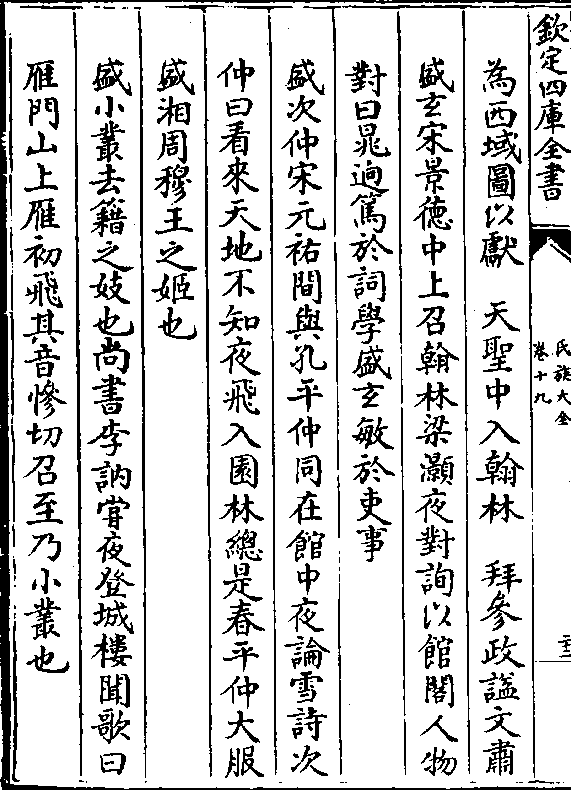 欽定四庫全書
氏族大全
卷十九
為西域圖以獻　天聖中入翰林　拜參政諡文肅
盛玄宋景德中上召翰林梁灝夜對詢以館閣人物
對曰晁逈篤於詞學盛玄敏於吏事
盛次仲宋元祐間與孔平仲同在館中夜論雪詩次
仲曰看來天地不知夜飛入園林總是春平仲大服
盛湘周穆王之姬也
盛小叢去籍之妓也尚書李訥甞夜登城樓聞歌曰
雁門山上雁初飛其音慘切召至乃小叢也